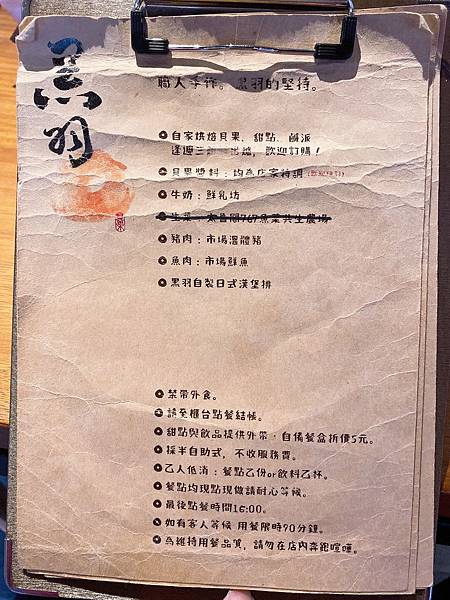 黑羽
職人手作。黑羽的堅持。
自家烘焙貝果、甜點、鹹派
逢週三 出爐,歡迎訂購!
貝果醬料:均為店家特調
牛奶:鮮乳坊
生菜: 767魚菜共生農場
豬肉:市場溫體豬
魚肉:市場鮮魚
黑羽自製日式漢堡排
禁帶外食。
請至櫃台點餐結帳。
甜點與飲品提供外帶,自備餐盒折價5元。
採半自助式,不收服務費。
乙人低消:餐點乙份or飲料乙杯。
餐點均現點現做請耐心等候。
最後點餐時間16:00。
如有客人等候 用餐限時90分鐘。
為維持用餐品質,請勿在店內奔跑喧嘩。